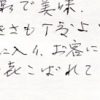 品で美味、
きさも丁度よ
に入り、お客に
喜こばれて